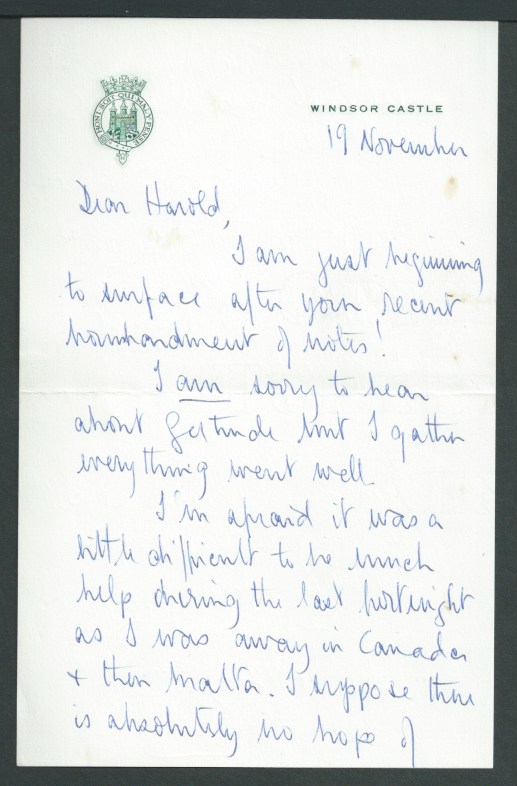 HONI SOIT QUI MAL Y PENSE
WINDSOR CASTLE
19 November
Dear Harold,
I am just beginning
to surface after your recent
bombardment of notes!
I am sorry to hear
about Gertrude but I gather
everything went well
I'm afraid it was a
little difficult to be much
help during the last fortnight
as I was away in Canada
& then Malta. I suppose there
is absolutely no hope of